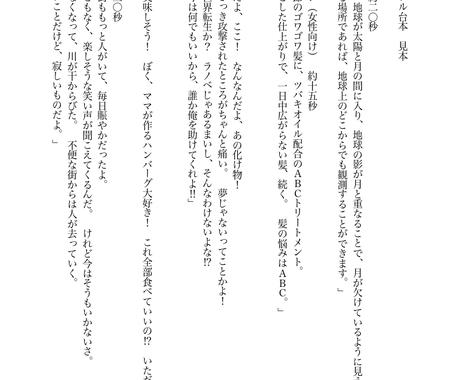 ル台本　見本
地球が太陽と月の間に入り、地球の影が月と重なることで、月が欠けているように見え
場所であれば、地球上のどこからでも観測することができます。」
（女性向け）　約十五秒
のゴワゴワ髪に、ツバキオイル配合のＡＢＣトリートメント。
とした仕上がりで、一日中広がらない髪、続く。　髪の悩みはＡＢＣ。」
よ、ここ！　なんなんだよ、あの化け物！
っき攻撃されたところがちゃんと痛い。　夢じゃないってことかよ！
界転生か？　ラノベじゃあるまいし、そんなわけないよな⁉
は何でもいいから、誰か俺を助けてくれよ‼」
味しそう！　ぼく、ママが作るハンバーグ大好き！　これ全部食べていいの⁉　いただ
〇秒
もっと人がいて、毎日賑やかだったよ。
もなく、楽しそうな笑い声が聞こえてくるんだ。　けれど今はそうもいかないさ。
くなって、川が干からびた。　不便な街からは人が去っていく。
ことだけど、寂しいものだよ。」